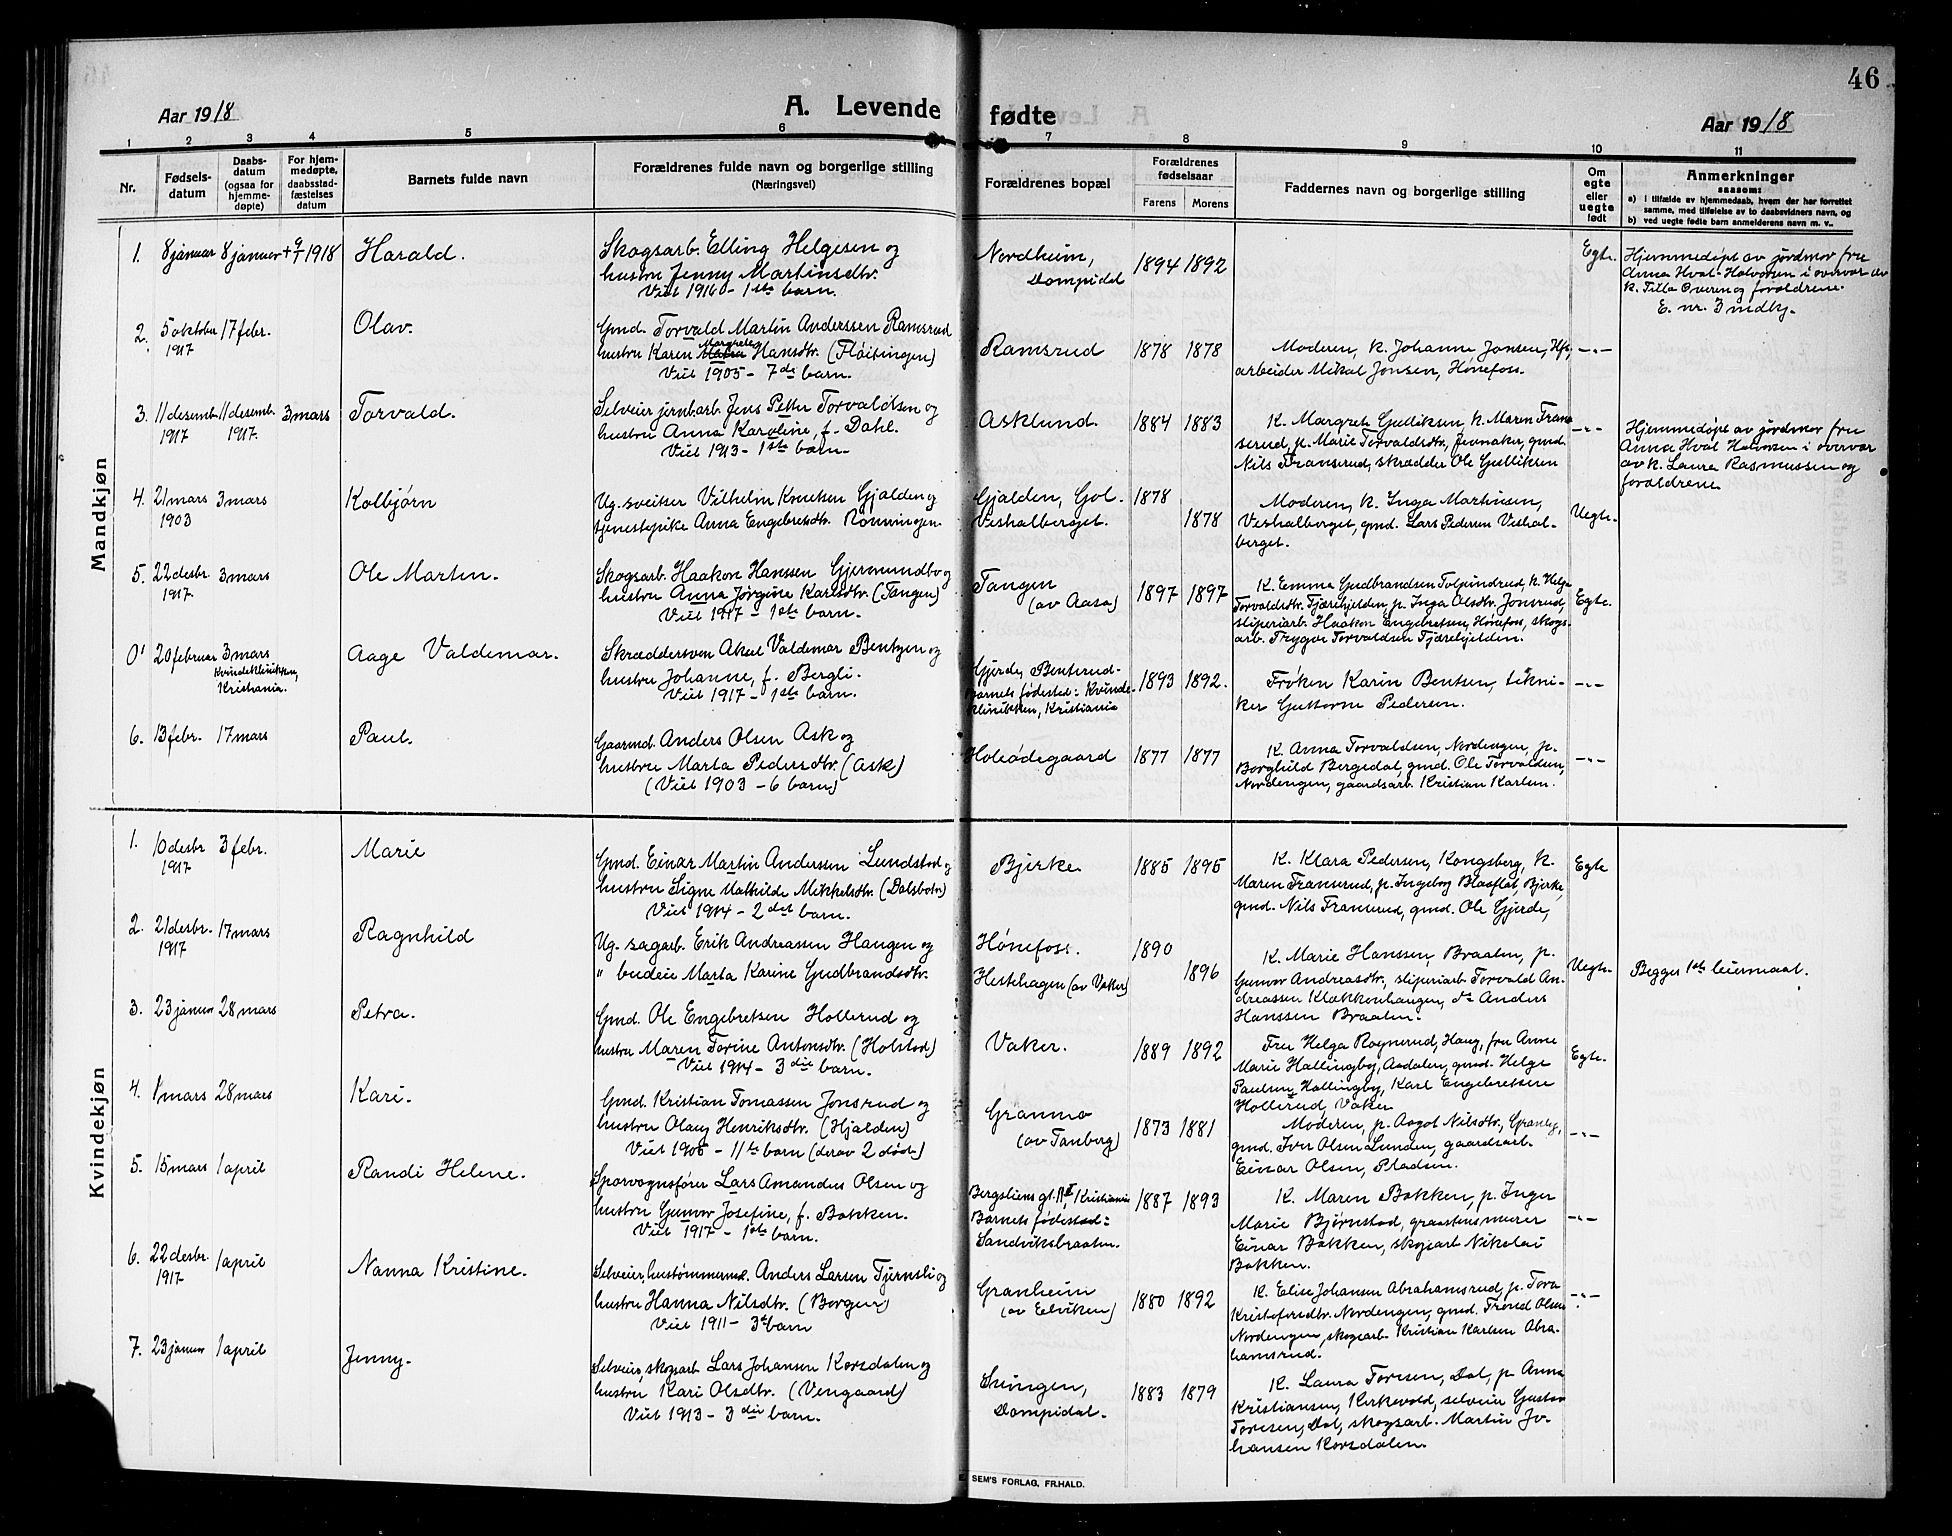 46
Aar 1918
A. Levende fødte
Aar 1918
1 2 3 4 5 6 7 8 9 10 11
Nr.
Fødsels-
datum
Daabs-
datum
(ogsaa for
hjemme-
døpte)
For hjem-
medøpte,
daabsstad-
fæstelses
datum
Barnets fulde navn
Forældrenes fulde navn og borgerlige stilling
(Næringsvei)
Forældrenes bopæl
Forældrenes
fødselsaar
Farens Morens
Faddernes navn og borgerlige stilling
Om
egte
eller
uegte
født
Anmerkninger
saasom:
a) i tilfælde av hjemmedaab, hvem der har forrettet
samme, med tilføielse av to daabsvidners navn, og
b) ved uegte fødte barn anmelderens navn m. v..
Mandkjøn
1. 8 januar 8 januar + 9/1 1918 Harald.
Skogsarb. Elling Helgesen og
hustru Jenny Martinsdtr.
Viet 1916 - 1ste barn.
Nordheim,
Dompidal
1894 1892
Egte.
Hjemmedøpt av jordmor fru
Anna Hval-Halvorsen i overvær av
k. Tilla Overen og forældrene.
E. nr. 3 indby.
2. 5 oktober 17 febr. Olav.
1917
Gmd. Torvald Martin Anderssen Ramsrud
hustru Karen Margrete Hansdtr. (Fløitingen)
Viet 1905 - 7de barn.
Ramsrud 1878 1878
Moderen, k. Johanne Jonsen, Hfs,
arbeider Mikal Jonsen, Hønefoss.
-"-
3. 11 desemb. 11 desemb. 3 mars Torvald.
1917 1917.
Selveier jernbarb. Jens Petter Torvaldsen og
hustru Anna Karoline, f. Dahl.
Viet 1913 - 1ste barn.
Asklund. 1884 1883
K. Margrete Gulliksen, k. Maren Tran-
serud, p. Marie Torvaldsdtr, Fennaker, gmd.
Nils Transerud, skrædder Ole Gulliksen
-"-
Hjemmedøpt av jordmor fru
Anna Hval Halvorsen i overvær
av k. Laura Rasmussen og
forældrene
4. 21 mars 3 mars Kolbjørn
1903
Ug. sveitser Vilhelm Knutsen Gjalden og
tjenestepike Anna Engebretsdtr. Rønningen.
Gjalden, Gol.
Veshalberget.
1878
1878
Moderen, k. Inga Martinsen,
Veshalberget, gmd. Lars Pedersen Veshal-
berget.
Uegte.
5. 22 desbr. 3 mars Ole Martin.
1917.
Skogsarb. Haakon Hanssen Gjermundbo og
hustru Anna Jørgine Karlsdtr. (Tangen)
Viet 1917 - 1ste barn.
Tangen
(av Aasa)
1897 1897
K. Emma Gudbrandsen Tolpindrud, k. Helga
Torvaldsdtr. Tjærehjelden, p. Inga Olsdtr. Jonsrud,
sliperiarb. Haakon Engebretsen, Hønefoss, skogs-
arb. Trygve Torvaldsen Tjærehjelden.
Egte.
0' 20 februar 3 mars Aage Valdemar.
Kvindeklinikken,
Kristiania.
Skræddersven Aksel Valdemar Bentzen og
hustru Johanne, f. Bergli.
Viet 1917 - 1ste barn.
Gjerde, Benterud-
Barnets fødested: Kvinde-
klinikken, Kristiania
1893 1892.
Frøken Karin Bentsen, tekni-
ker Guttorm Pedersen.
-"-
6. 13 febr. 17 mars Paul.
Gaarmd. Anders Olsen Ask og
hustru Marta Pedersdtr. (Ask)
(Viet 1903 - 6 barn)
Holeødegaard 1877 1877
K. Anna Torvaldsen, Nordengen, p.
Borghild Bergedal, gmd. Ole Torvaldsen,
Nordengen, gaardsarb. Kristian Karlsen.
-"-
Kvindekjøn
1. 10 desbr 3 febr. Marie
1917
Gmd. Einar Martin Anderssen Lundstad og
hustru Signe Mathilde Mikkelsdtr. (Dalsbotn)
Viet 1914 - 2det barn.
Bjerke 1885 1895
K. Klara Pedersen, Kongsberg, k.
Maren Transerud, p. Ingeborg Blaaflat, Bjerke,
gmd. Nils Transerud, gmd. Ole Gjerde,
Egte
2. 21 desbr. 17 mars Ragnhild
1917
Ug. sagarb. Erik Andreassen Haugen og
" budeie Marta Karine Gudbrandsdtr.
Hønefoss.
Hestehagen (av Vaker)
1890
1896
K. Marie Hanssen, Braaten, p.
Gunvor Andreasdtr, sliperiarb. Torvald An-
dreassen Klækkenhaugen, do Anders
Hanssen Braaten.
Uegte.
Begges 1ste leiermaal.
3. 23 januar 28 mars Petra.
Gmd. Ole Engebretsen Hollerud og
hustru Maren Torine Antonsdtr. (Holstad)
Viet 1914 - 3die barn.
Vaker. 1889 1892
Fru Helga Rognerud, Haug, fru Anne
Marie Hallingby, Aadalen, gmd. Helge
Paulsen Hallingby, Karl Engebretsen
Hollerud, Vaker
Egte.
4. 1 mars 28 mars Kari.
Gmd. Kristian Tomassen Jonsrud og
hustru Olaug Henriksdtr. (Hjalden)
Viet 1905 - 11te barn (derav 2 døde)
Granmo
(av Tanberg)
1873 1881
Moderen, p. Aagot Nilsdtr, Granly,
gmd. Iver Olsen Lunden, gaardsarb.
Einar Olsen, Pladsen.
-"-
5. 15 mars 1 april Randi Helene.
Sporvognsfører Lars Amandus Olsen og
hustru Gunvor Josefine, f. Bakken.
Viet 1917 - 1ste barn.
Bergsliens gt. Kristiania
Barnets fødested:
Sandviksbraaten.
1887 1893
K. Maren Bakken, p. Inger
Marie Bjørnstad, graastensmurer
Einar Bakken, skogsarb. Nikolai
Bakken.
-"-
6. 22 desbr. 1 april Nanna Kristine.
1917
Selveier, hustømmermd. Anders Larsen Tjernsli og
hustru Hanna Nilsdtr. (Borgen)
Viet 1911 - 3de barn
Granheim
(av Elviken)
1880 1892
K. Elise Johansen Abrahamsrud, p. Tora
Kristoffersdtr. Nordengen, gmd. Trond Olsen
Nordengen, skogsarb. Kristian Karlsen Abra-
hamsrud.
-"-
7. 23 januar 1 april Jenny.
Selveier, skogsarb. Lars Johansen Korsdalen og
hustru Kari Olsdtr. (Vengaard)
Viet 1913 - 3die barn.
Svingen,
Dompidal.
1883 1879
K. Laura Toresen, Dal, p. Anna
Kristiansen, Kirkevold, selveier Gustav
Toresen, Dal, skogsarb. Martin Jo-
hansen Korsdalen.
SEM'S FORLAG, FR.HALD.